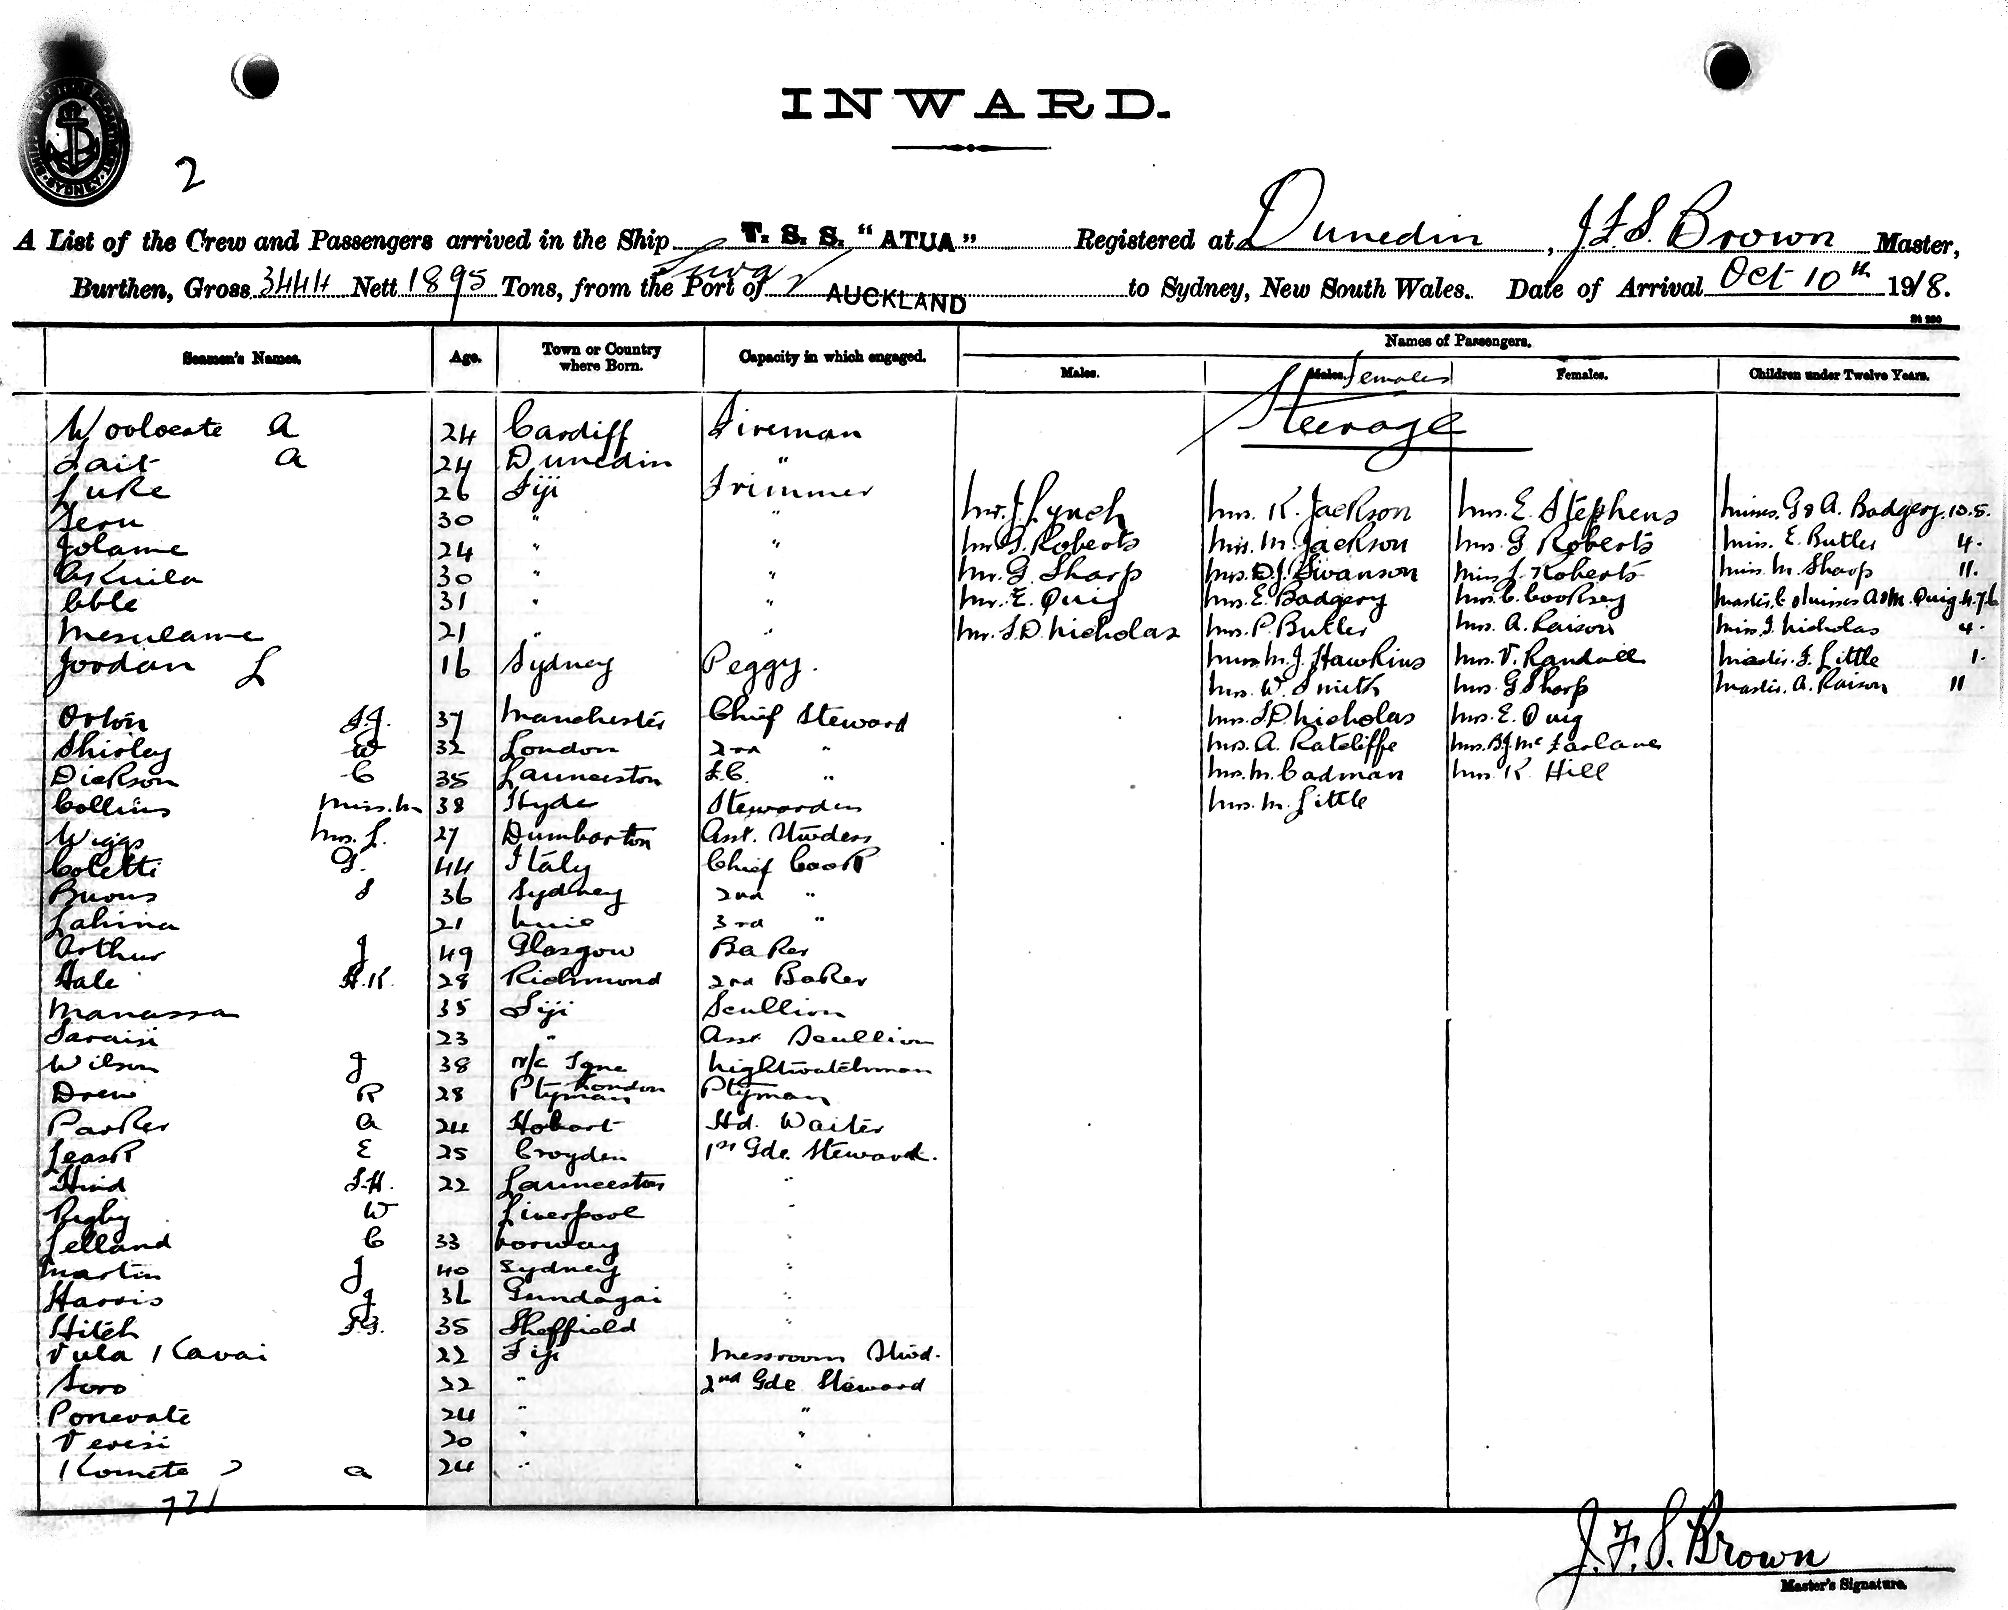 INWARD.
2
SYDNEY
A List of the Crew and Passengers arrived in the Ship T. S. S. "ATUA" Registered at Dunedin, J.F.S. Brown Master,
Burthen, Gross 3444 Nett 1895 Tons, from the Port of Suva AUCKLAND to Sydney, New South Wales. Date of Arrival Oct 10th 1918.
Seamen's Names. Age. Town or Country where Born. Capacity in which engaged. Names of Passengers.
Males. Males. Females Females. Children under Twelve Years.
Steerage
Woolocate A 24 Cardiff Fireman
Lait A 24 Dunedin "
Luke 26 Fiji Trimmer
Teru 30 " "
Jolame 24 " "
Askuila 30 " "
Cble 31 " "
Mesulame 21 " "
Jordan L 16 Sydney Peggy.
Orton J.J. 37 Manchester Chief Steward
Shirley W 32 London 2nd "
Dickson C 35 Launceston F.C. "
Collins Miss. M 38 Hyde Stewardess
Wiggs Mrs. L. 27 Dumbarton Asst. Stwdess
Coletti G. 44 Italy Chief Cook
Buons S 36 Sydney 2nd "
Lahina 21 Niue 3rd "
Arthur J 49 Glasgow Baker
Hale H.K. 28 Richmond 2nd Baker
Manassa 35 Fiji Scullion
Saraisi 23 " Asst Scullion
Wilson J 38 N/c Tyne Nightwatchman
Drew R 28 Ptyman London Ptyman
Parker A 24 Hobart Hd. Waiter
Leask E 25 Croyden 1st Gde. Steward.
Hind F.H. 22 Launceston "
Rigby W Liverpool "
Lelland C 33 Norway "
Martin J 40 Sydney "
Harris J 36 Gundagai "
Hitch F.J. 35 Sheffield "
Vula Kavai 22 Fiji Messroom Stwd.
Soro 32 " 2nd Gde Steward
Ponevate 24 " "
Veresi 20 " "
Komete A 24 " "
771
Mr. J. Lynch
Mr G. Roberts
Mr. G. Sharp
Mr. E. Quig
Mr. S.D. Nicholas
Mrs. K. Jackson
Miss. M. Jackson
Mrs. D.J. Swanson
Mrs. E. Badgery
Mrs. P. Butler
Miss M. J. Hawkins
Mrs. W. Smith
Mrs. S.D. Nicholas
Mrs. A. Ratcliffe
Mrs. M. Cadman
Mrs. M. Little
Mrs. E. Stephens
Mrs. G Roberts
Miss L. Roberts
Mrs. C. Cooksey
Mrs. A. Raison
Mrs. V. Randall
Mrs. G Sharp
Mrs. E. Quig
Mrs. B.J. McFarlane
Mrs. K. Hill
Misses. G & A. Badgery. 10. 8.
Miss. E. Butler 4.
Miss. M. Sharp 11.
Master. C & Misses A & M. Quig 4. 7. 6
Miss. J. Nicholas 4.
Master. F. Little 1.
Master. A. Raison 11
J.F.S. Brown
Master's Signature.